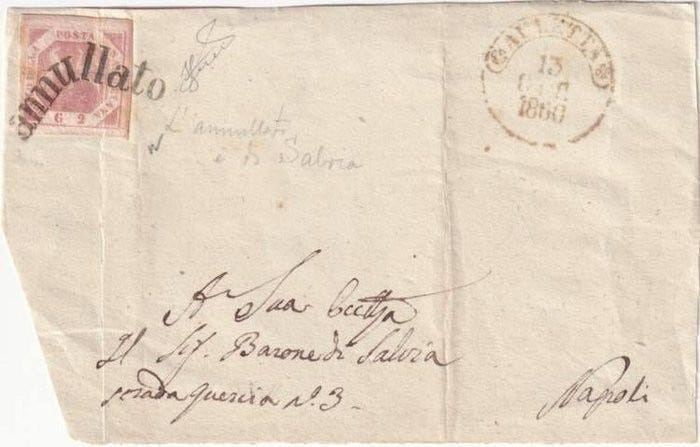 POSTA
annullato
G 2
13
1860
L'annullato
è di Salvia
A Sua Ecc[za]
Il Sig. Barone di Salvia
strada quercia n.° 3.
Napoli